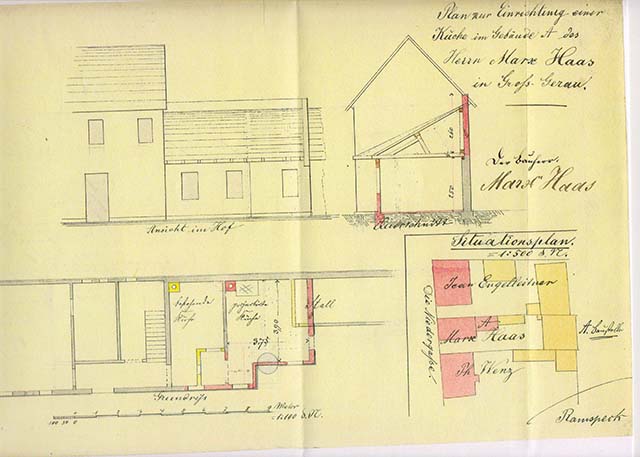 Plan zur Einrichtung einer
Küche im Gebäude A des
Herrn Marx Haas
in Groß-Gerau.
Der Bauherr.
Marx Haas
Ansicht im Hof
Querschnitt
Situationsplan.
1:500 d. N.
Jean Engelleitner
Die Niedergasse.
A
Marx Haas
Ph. Wenz
A. Baustelle
bestehende
Küche
projectirte
Küche
Stall
3,75
3,90
Grundriß
100 50 0
9 Meter
1:100 d. N.
Ramspeck